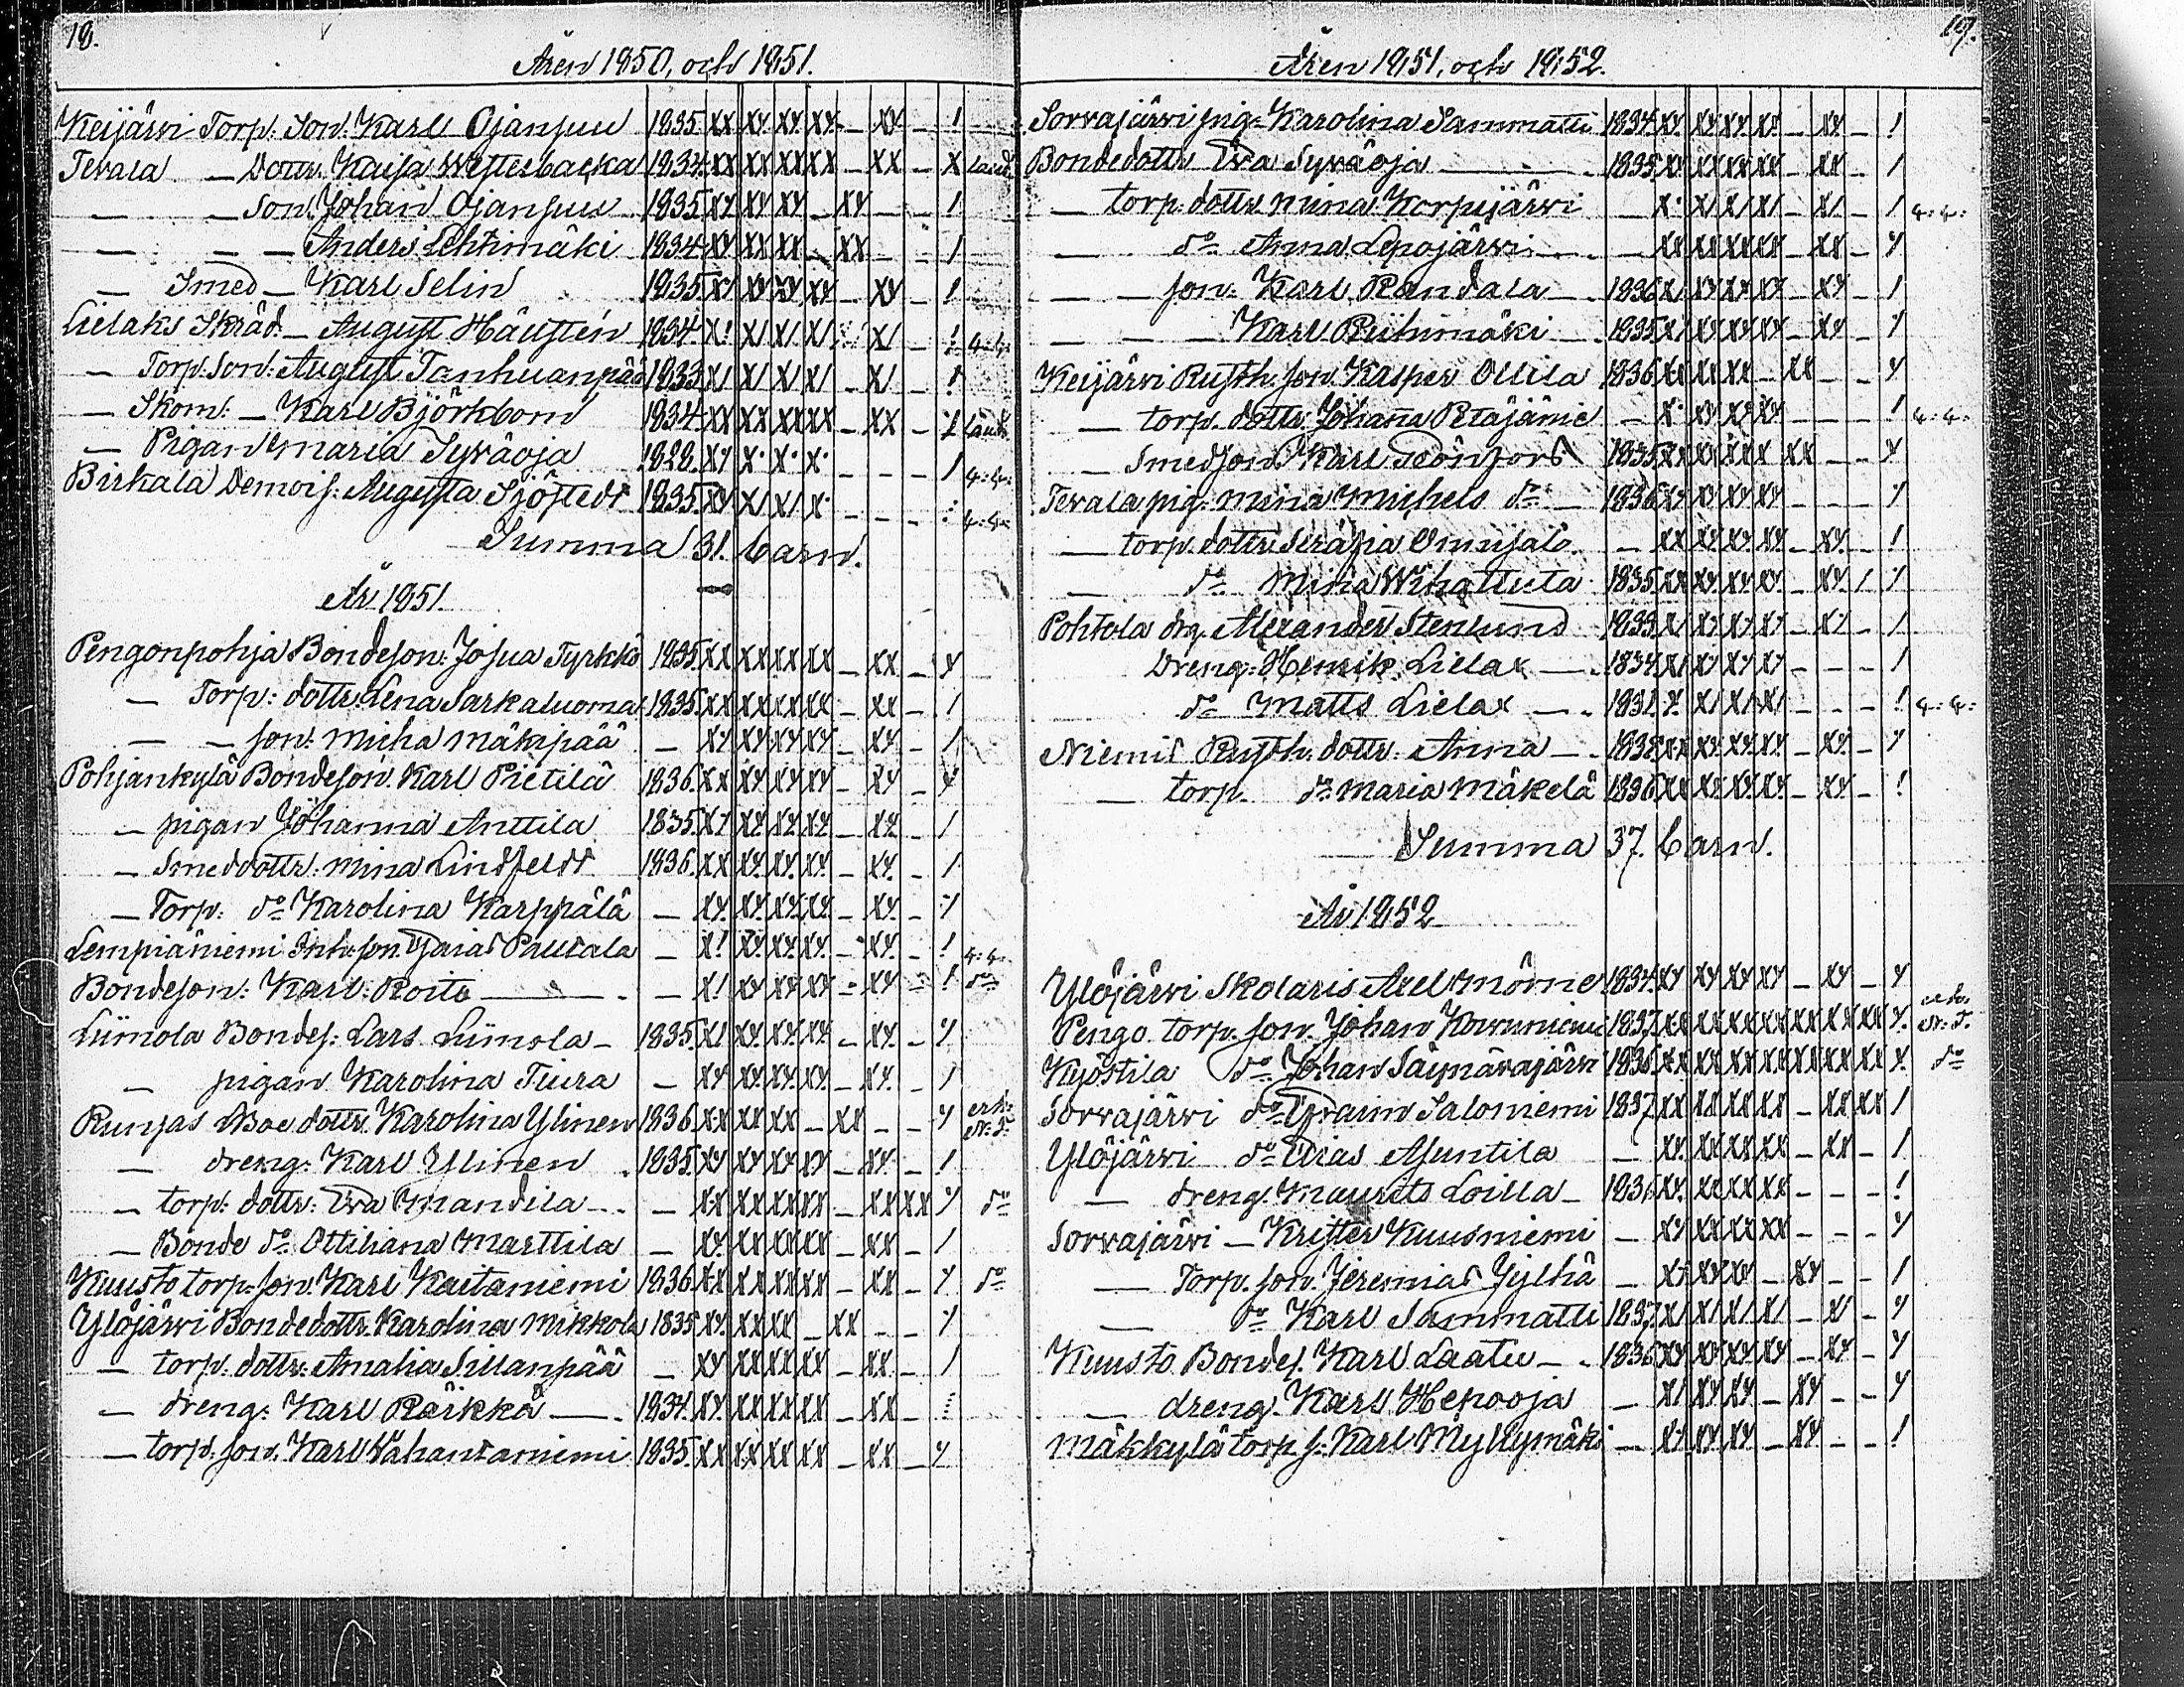 18.
Åren 1850, och 1851.
Keijärvi Torp. Son. Karl Ojansuu 1835 XX XX XX XX — XX — /
Terala — Dottr. Kaisa Westerbacka 1834. XX XX XX XX — XX — X Laud.
— — Son. Johan Ojansuu 1835 XX XX XX — XX — — /
— — — Anders Lehtimäki 1834 XX XX XX — XX — — /
— Smed — Karl Selin 1835 XX XX XX XX — XX — /
Lielaks Skräd. — August Häusten 1834. X/ X/ X/ X/ X/ — 4:4:
— Torp. Son. August Tanhuanpää 1833 X/ X/ X/ X/ — X/ — /
— Skom. — Karl Björkbom 1834 XX XX XX XX — XX — Laud.
— Pigan Maria Syväoja 1828. XX X· X· X· — — — / 4:4:
Birkala Demois. Augusta Sjöstedt 1835. XX X/ X/ X· — — — 4:4:
Summa 31. barn.
År 1851.
Pengonpohja Bondeson: Josua Tyrkkö 1835. XX XX XX XX — XX — Y
— Torp: dottr. Lena Sarkaluoma 1835. XX XX XX XX — XX — /
— — son: Micha Mäkipää — XY XY XY XY — XY — /
Pohjankylä Bondeson. Karl Pietilä 1836. XX XY XY XY — XY — Y
— pigan Johanna Anttila 1835. XY XY XY XY — XY — /
— Smeddottr: Mina Lindfeldt 1836. XX XY XY XY — XY — /
— Torp: do Karolina Karppälä — XY XY XY XY — XY — Y
Lempiäniemi Inh. son. Isaias Pautala — X/ XY XY XY — XY — / 4:4:
Bondeson: Karl: Roito — X/ XY XY XY — XY — / do
Liimola Bondes: Lars Liimola — 1835. X/ XY XY XY — XY — Y
— pigan Karolina Tiura — XY XY XY XY — XY — /
Runsas Boe dottr. Karolina Ylinen 1836. XX XX XX — XX — — Y erh. N. T.
— dreng: Karl Ylinen 1835. XY XY XY XY — XY — /
— torp: dottr: Eva Mandila — XX XX XX XX — XX XX Y do
— Bonde do Ottiliana Marttila — XY XX XX XX — XX — /
Kuusto torp: son. Karl Kaitaniemi 1836. XX XX XX XX — XX — Y do
Ylöjärvi Bondedottr. Karolina Mikkola 1835 XY XX XX — XX — — Y
— torp. dottr: Amalia Sillanpää — XY XX XX XX — XX — /
— dreng: Karl Räikkä — 1834. XY XX XX XX — XX —
— torp: son. Karl Vähäntaniemi 1835. XX XX XX XX — XX — Y
19.
Åren 1851, och 1852.
Sorvajärvi pig. Karolina Sammatti 1834. XY XY XY XY — XY — /
Bondedottr. Eva Syväoja 1835 XY XX XX XX — XX — /
— torp. dottr. Mina Korpijärvi — X· X/ X/ X/ — X/ — / 4:4:
— do Anna Lepojärvi — XX XX XX XX — XX — Y
— — son: Karl Randala — 1836 X/ XY XY XY — XY — /
— — — Karl Riihimäki — 1835 X/ XY XY XY — XY — Y
Keijärvi Rusth. son. Kasper Ollila 1836 XX XX XX — XX — — Y
— torp. dottr. Johana Petäjänie — X· XY XY XY — — — / 4:4:
— Smedson. Karl 1835 XX XY XX XX — — Y
Terala pig. Mina Michels dr — 1836 XY XY XY XY — — — Y
— torp. dottr. Serafia — XX XY XY XY — XY — /
— do Mina Wihattula 1835 XX XY XY XY — XY / /
Pohtola drg. Alexander Stenlund 1833. X/ XY XY XY — XY — /
Dreng: Henrik Lielax — 1834 X/ XY XY XY — — — /
do Matts Lielax — 1831. Y. X/ X/ X/ — — — / 4:4:
Niemis Rusth. dottr. Anna — 1838. XX XY XY XY — XY — Y
— torp. do Maria Mäkelä 1836 XX XY XY XY — XY — /
Summa 37. barn.
År 1852
Ylöjärvi Skolaris Axel Mörne 1834. XY XY XY XY — XY — Y
Pengo torp. son. Johan 1837. XX XX XX XX XX X XX Y. erh. N: T.
Kyöstilä do Johan Säynävajärvi 1836. XX XX XX XX XX XX XX Y. do
Sorvajärvi do Efraim Saloniemi 1837 XX XX XX XX — XX XX /
Ylöjärvi do Elias Asuntila — XY XX XX XX — XX — /
— dreng. Maurits Loilla — 1836 XY. XX XX XX — — — /
Sorvajärvi — Krister Kuusniemi — XY XX XX XX — — — Y
— Torp. son. Jeremias Jylhä — XY XY XY — XY — — /
— do Karl Sammatti 1837. X/ X/ X/ X/ — X/ — Y
Kuusto Bondes. Karl Laatu — 1836 XY XY XY XY — XY — Y
— dreng. Karl Hepooja — X/ XY XY — XY — — Y
Mäkkylä torp. s: Karl Myllymäki — XY XY XY — XY — — /